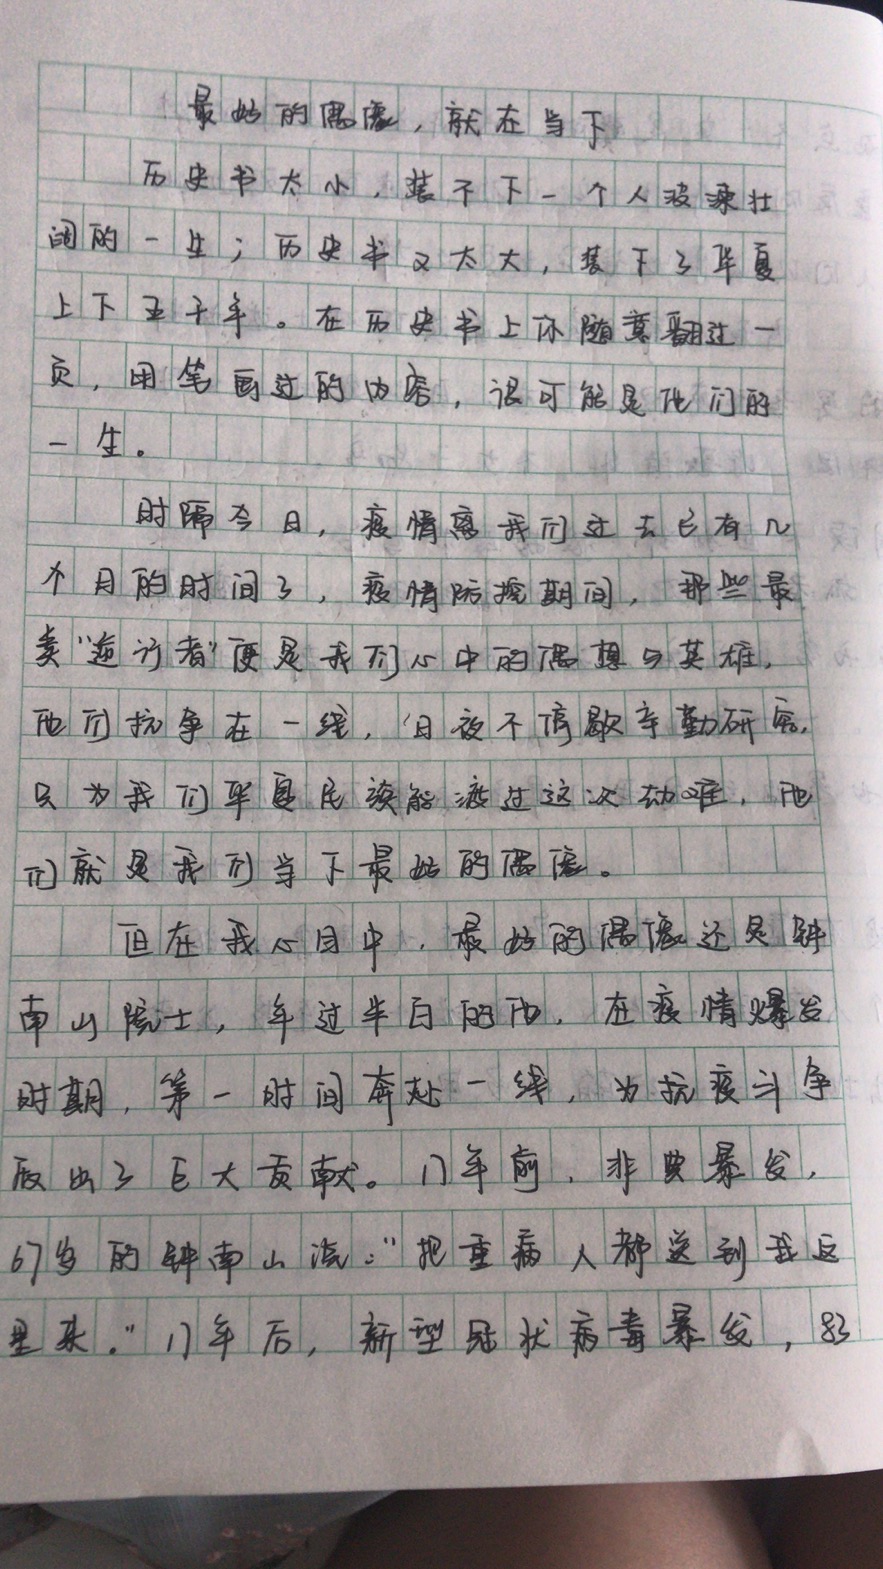 最好的偶像，就在当下
历史书太小，装不下一个人波澜壮
阔的一生；历史书又太大，装下了华夏
上下五千年。在历史书上你随意翻过一
页，用笔画过的内容，很可能是他们的
一生。
时隔今日，疫情离我们过去已有几
个月的时间了，疫情防控期间，那些最
美“逆行者”便是我们心中的偶想与英雄，
他们抗争在一线，日夜不停歇辛勤研究，
只为我们华夏民族能渡过这次劫难，他
们就是我们当下最好的偶像。
但在我心目中，最好的偶像还是钟
南山院士，年过半百的他，在疫情爆发
时期，第一时间奔赴一线，为抗疫斗争
做出了巨大贡献。17年前，非典暴发，
67岁的钟南山说：“把重病人都送到我这
里来。”17年后，新型冠状病毒暴发，83